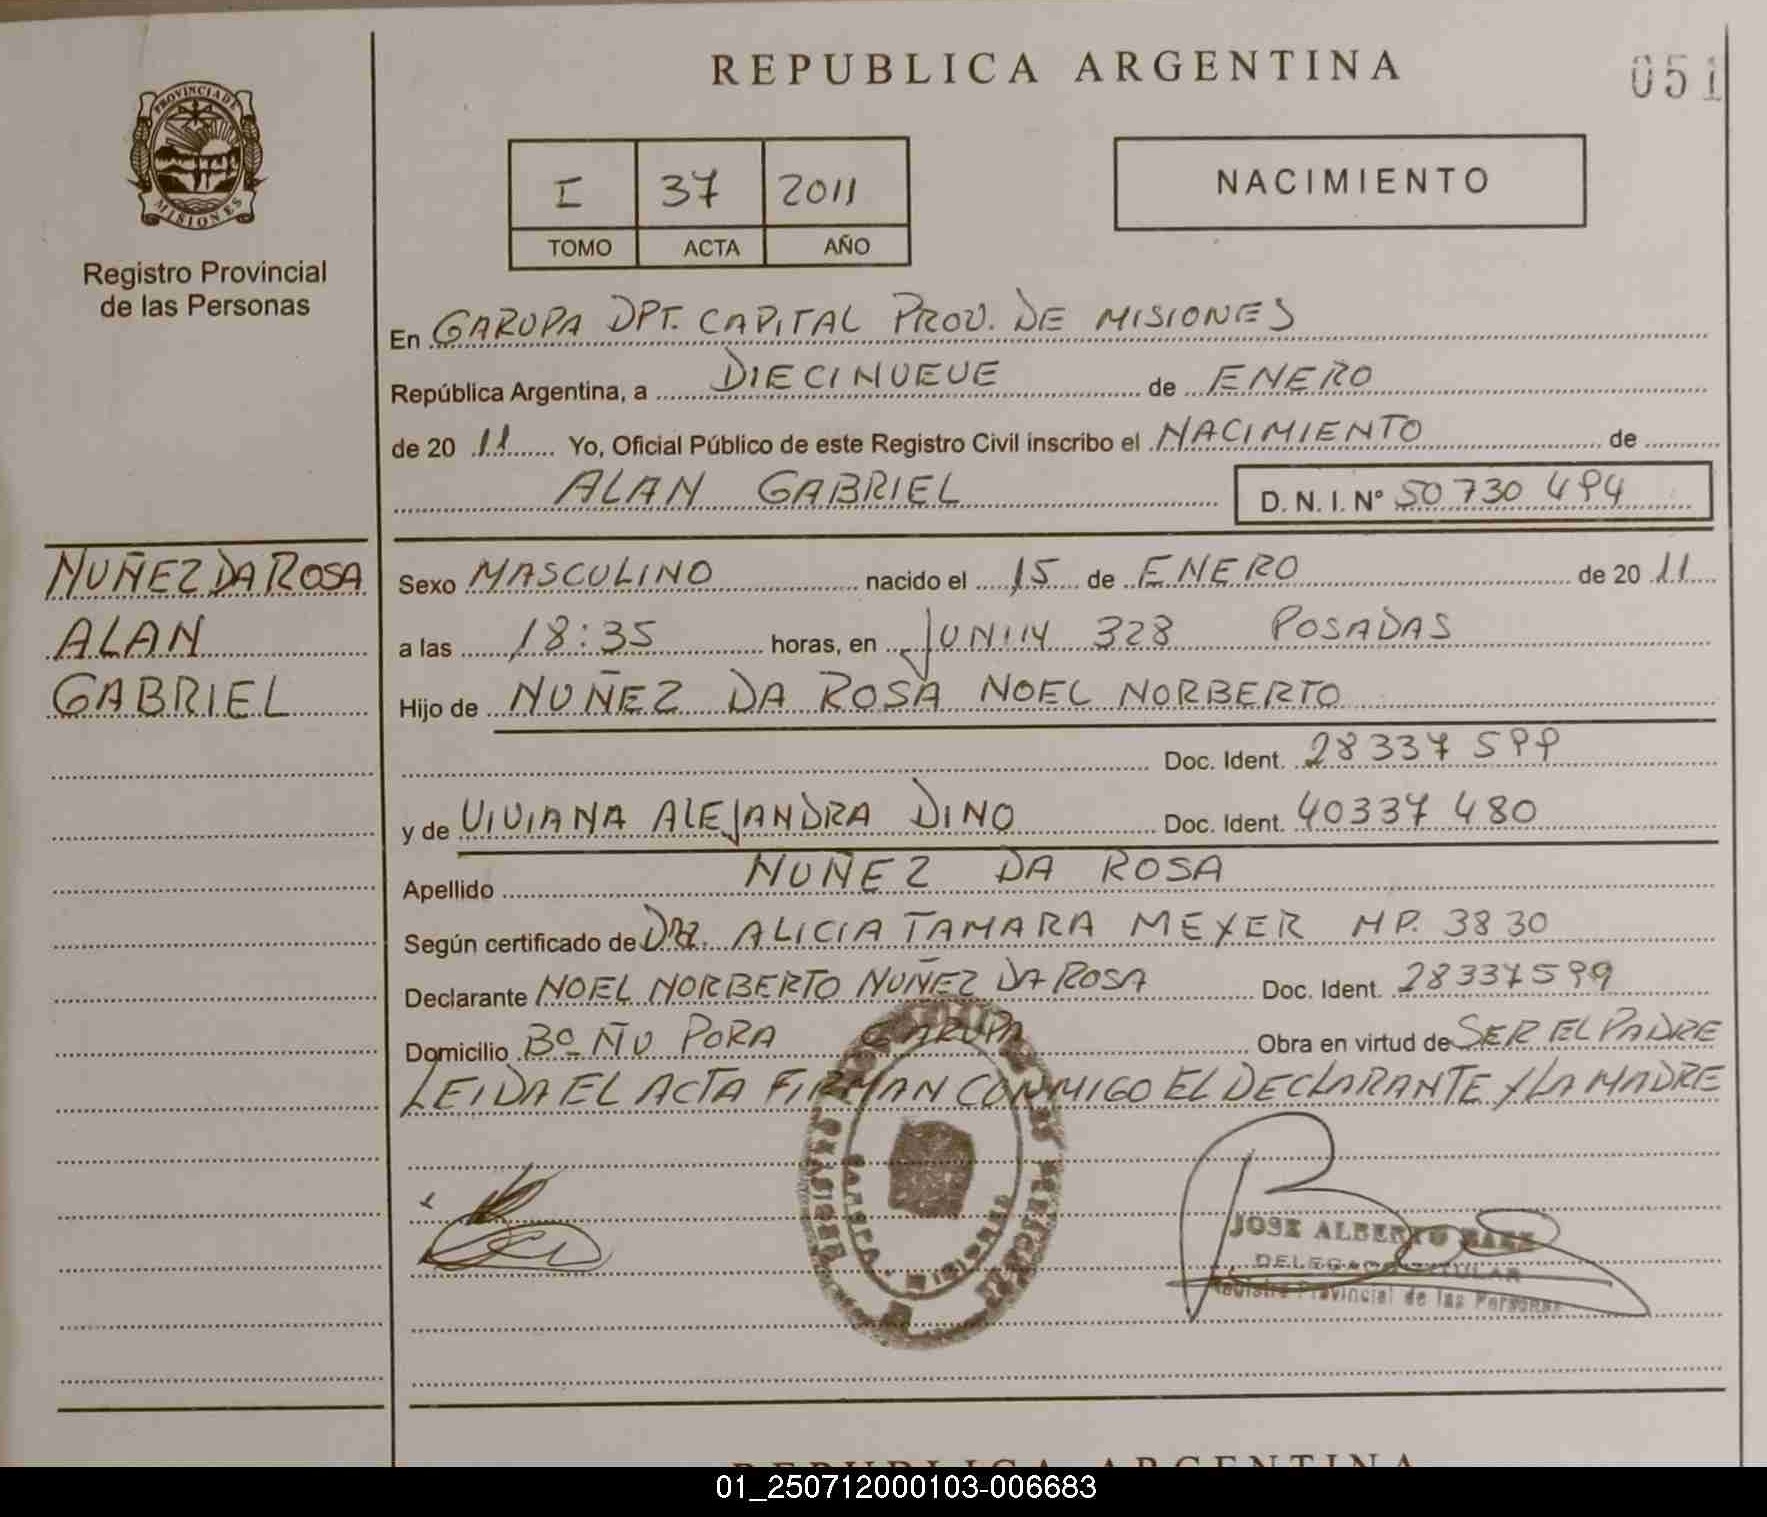 REPUBLICA ARGENTINA
051
PROVINCIA DE
MISIONES
Registro Provincial
de las Personas
I 37 2011
TOMO ACTA AÑO
NACIMIENTO
En GARUPA DPT. CAPITAL PROV. DE MISIONES
República Argentina, a DIECINUEVE de ENERO
de 20 11 Yo, Oficial Público de este Registro Civil inscribo el NACIMIENTO de
ALAN GABRIEL D. N. I. Nº 50 730 494
NUÑEZ DA ROSA
ALAN
GABRIEL
Sexo MASCULINO nacido el 15 de ENERO de 20 11
a las 18:35 horas, en JUNIN 328 POSADAS
Hijo de NUÑEZ DA ROSA NOEL NORBERTO
Doc. Ident. 28 337 599
y de VIVIANA ALEJANDRA DINO Doc. Ident. 40337 480
Apellido NUÑEZ DA ROSA
Según certificado de DRA. ALICIA TAMARA MEYER MP. 3830
Declarante NOEL NORBERTO NUÑEZ DA ROSA Doc. Ident. 28337599
Domicilio Bº ÑU PORA GARUPA Obra en virtud de SER EL PADRE
LEIDA EL ACTA FIRMAN CONMIGO EL DECLARANTE Y LA MADRE
JOSE ALBERTO BAEZ
DELEGADO TITULAR
Registro Provincial de las Personas
REPUBLICA ARGENTINA
01_250712000103-006683